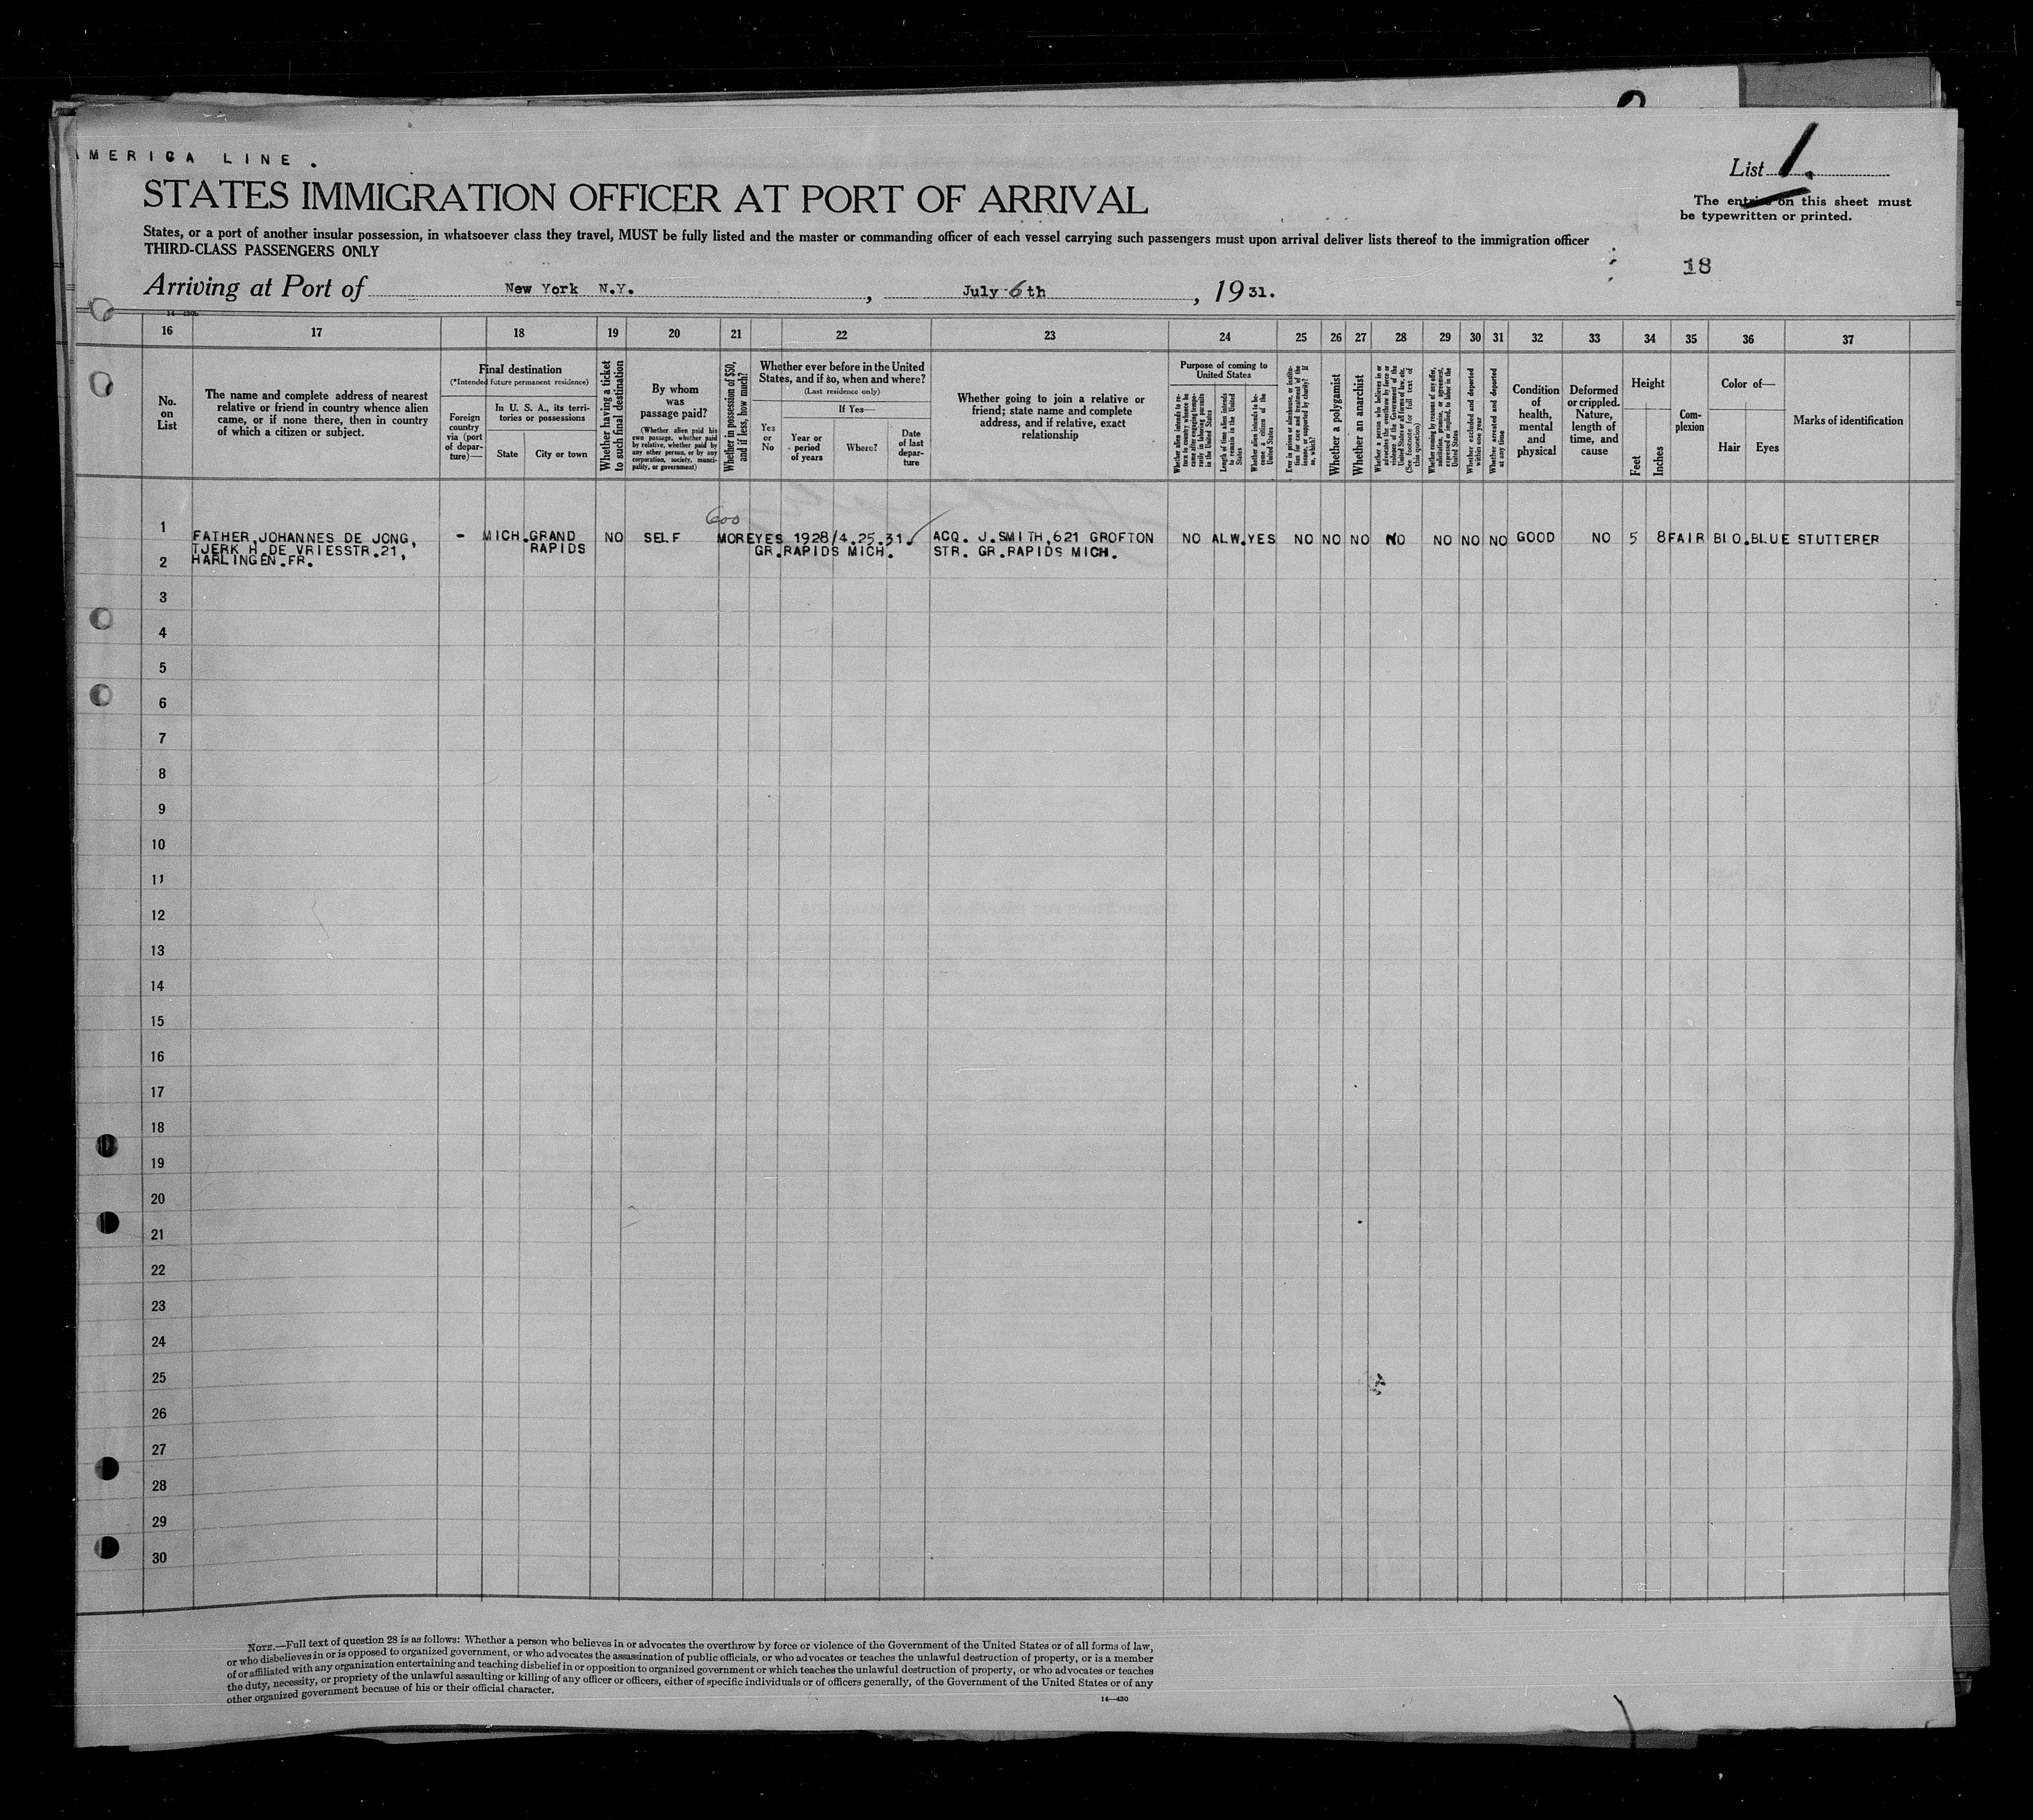 AMERICA LINE.
List 1.
STATES IMMIGRATION OFFICER AT PORT OF ARRIVAL
The entries on this sheet must
be typewritten or printed.
States, or a port of another insular possession, in whatsoever class they travel, MUST be fully listed and the master or commanding officer of each vessel carrying such passengers must upon arrival deliver lists thereof to the immigration officer
THIRD-CLASS PASSENGERS ONLY
18
Arriving at Port of New York N.Y., July 6th, 1931.
14—430b
16 17 18 19 20 21 22 23 24 25 26 27 28 29 30 31 32 33 34 35 36 37
No.
on
List
The name and complete address of nearest
relative or friend in country whence alien
came, or if none there, then in country
of which a citizen or subject.
Final destination
(*Intended future permanent residence)
Foreign
country
via (port
of depar-
ture)—
In U. S. A., its terri-
tories or possessions
State
City or town
Whether having a ticket
to such final destination
By whom
was
passage paid?
(Whether alien paid his
own passage, whether paid
by relative, whether paid by
any other person, or by any
corporation, society, munici-
pality, or government)
Whether in possession of $50,
and if less, how much?
Whether ever before in the United
States, and if so, when and where?
(Last residence only)
Yes
or
No
If Yes—
Year or
period
of years
Where?
Date
of last
depar-
ture
Whether going to join a relative or
friend; state name and complete
address, and if relative, exact
relationship
Purpose of coming to
United States
Whether alien intends to re-
turn to country whence he
came after engaging tempo-
rarily in laboring pursuits
in the United States
Length of time alien intends
to remain in the United
States
Whether alien intends to be-
come a citizen of the
United States
Ever in prison or almshouse, or institu-
tion for care and treatment of the
insane, or supported by charity? If
so, which?
Whether a polygamist
Whether an anarchist
Whether a person who believes in or
advocates the overthrow by force or
violence of the Government of the
United States or all forms of law, etc.
(See footnote for full text of
this question)
Whether coming by reason of any offer,
solicitation, promise, or agreement,
expressed or implied, to labor in the
United States
Whether excluded and deported
within one year
Whether arrested and deported
at any time
Condition
of
health,
mental
and
physical
Deformed
or crippled.
Nature,
length of
time, and
cause
Height
Feet
Inches
Com-
plexion
Color of—
Hair
Eyes
Marks of identification
600
1 FATHER, JOHANNES DE JONG, - MICH. GRAND NO SELF MORE YES 1928/4.25.31. ACQ. J.SMITH,621 GROFTON NO ALW. YES NO NO NO NO NO NO NO GOOD NO 5 8 FAIR BLO. BLUE STUTTERER
TJERK H.DE VRIESSTR.21, RAPIDS GR.RAPIDS MICH. STR. GR.RAPIDS MICH.
2 HARLINGEN.FR.
3
4
5
6
7
8
9
10
11
12
13
14
15
16
17
18
19
20
21
22
23
24
25
26
27
28
29
30
NOTE.—Full text of question 28 is as follows: Whether a person who believes in or advocates the overthrow by force or violence of the Government of the United States or of all forms of law,
or who disbelieves in or is opposed to organized government, or who advocates the assassination of public officials, or who advocates or teaches the unlawful destruction of property, or is a member
of or affiliated with any organization entertaining and teaching disbelief in or opposition to organized government or which teaches the unlawful destruction of property, or who advocates or teaches
the duty, necessity, or propriety of the unlawful assaulting or killing of any officer or officers, either of specific individuals or of officers generally, of the Government of the United States or of any
other organized government because of his or their official character.
14—430